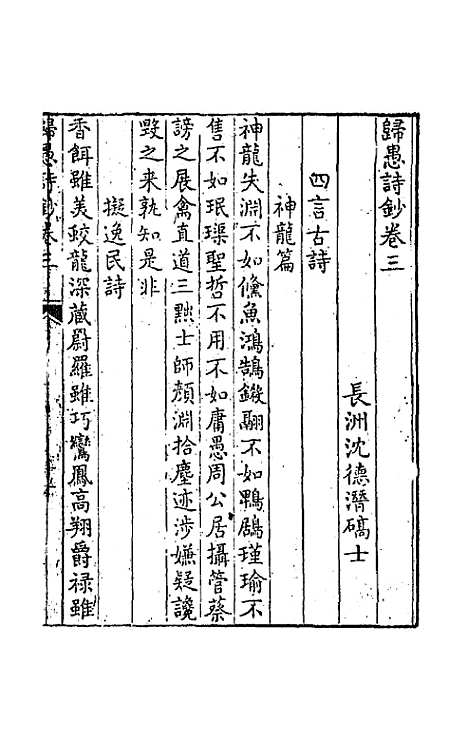 歸愚詩鈔卷三
長洲沈德潛碻士
四言古詩
神龍篇
神龍失淵不如鯈魚鴻鵠鎩翮不如鴨鷗瑾瑜不
售不如珉璖聖哲不用不如庸愚周公居攝管蔡
謗之展禽直道三黜士師顏淵拾塵迹涉嫌疑讒
毀之来孰知是非
擬逸民詩
香餌雖美蛟龍深藏罻羅雖巧鸞鳳高翔爵祿雖
歸愚詩鈔卷三